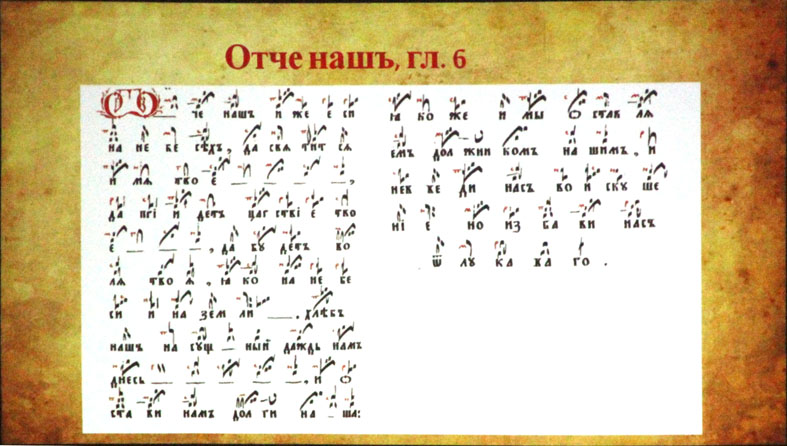 Отче нашъ, гл. 6
Ѿ _ че нашъ и же е си
на не бе сѣхъ, да свя тит ся
и мя тво е _ _ _ _,
да прі и детъ цар стві е тво
е _ _ _, да бу детъ во
ля тво я, ꙗ ко на не бе
си и на зем ли _ . хлѣбъ
нашъ на сущ _ ный даждь намъ
днесь _ _ _ _ _, и о
ста ви намъ дол ги на _ ша:
ꙗ ко же и мы о став ля
емъ дол жни комъ на шимъ, и
нев ве ди насъ во и ску ше
ні е но из ба ви насъ
ѿ лу ка ва го .